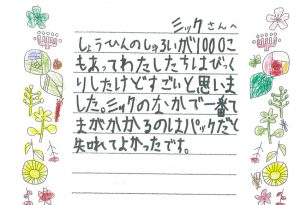 ミックさんへ
しょうひんのしゅるいが1000こ
もあってわたしたちはびっく
りしたけどすごいと思いまし
した。ミックのなかで一番て
まがかかるのはパックだと
失れてよかったです。